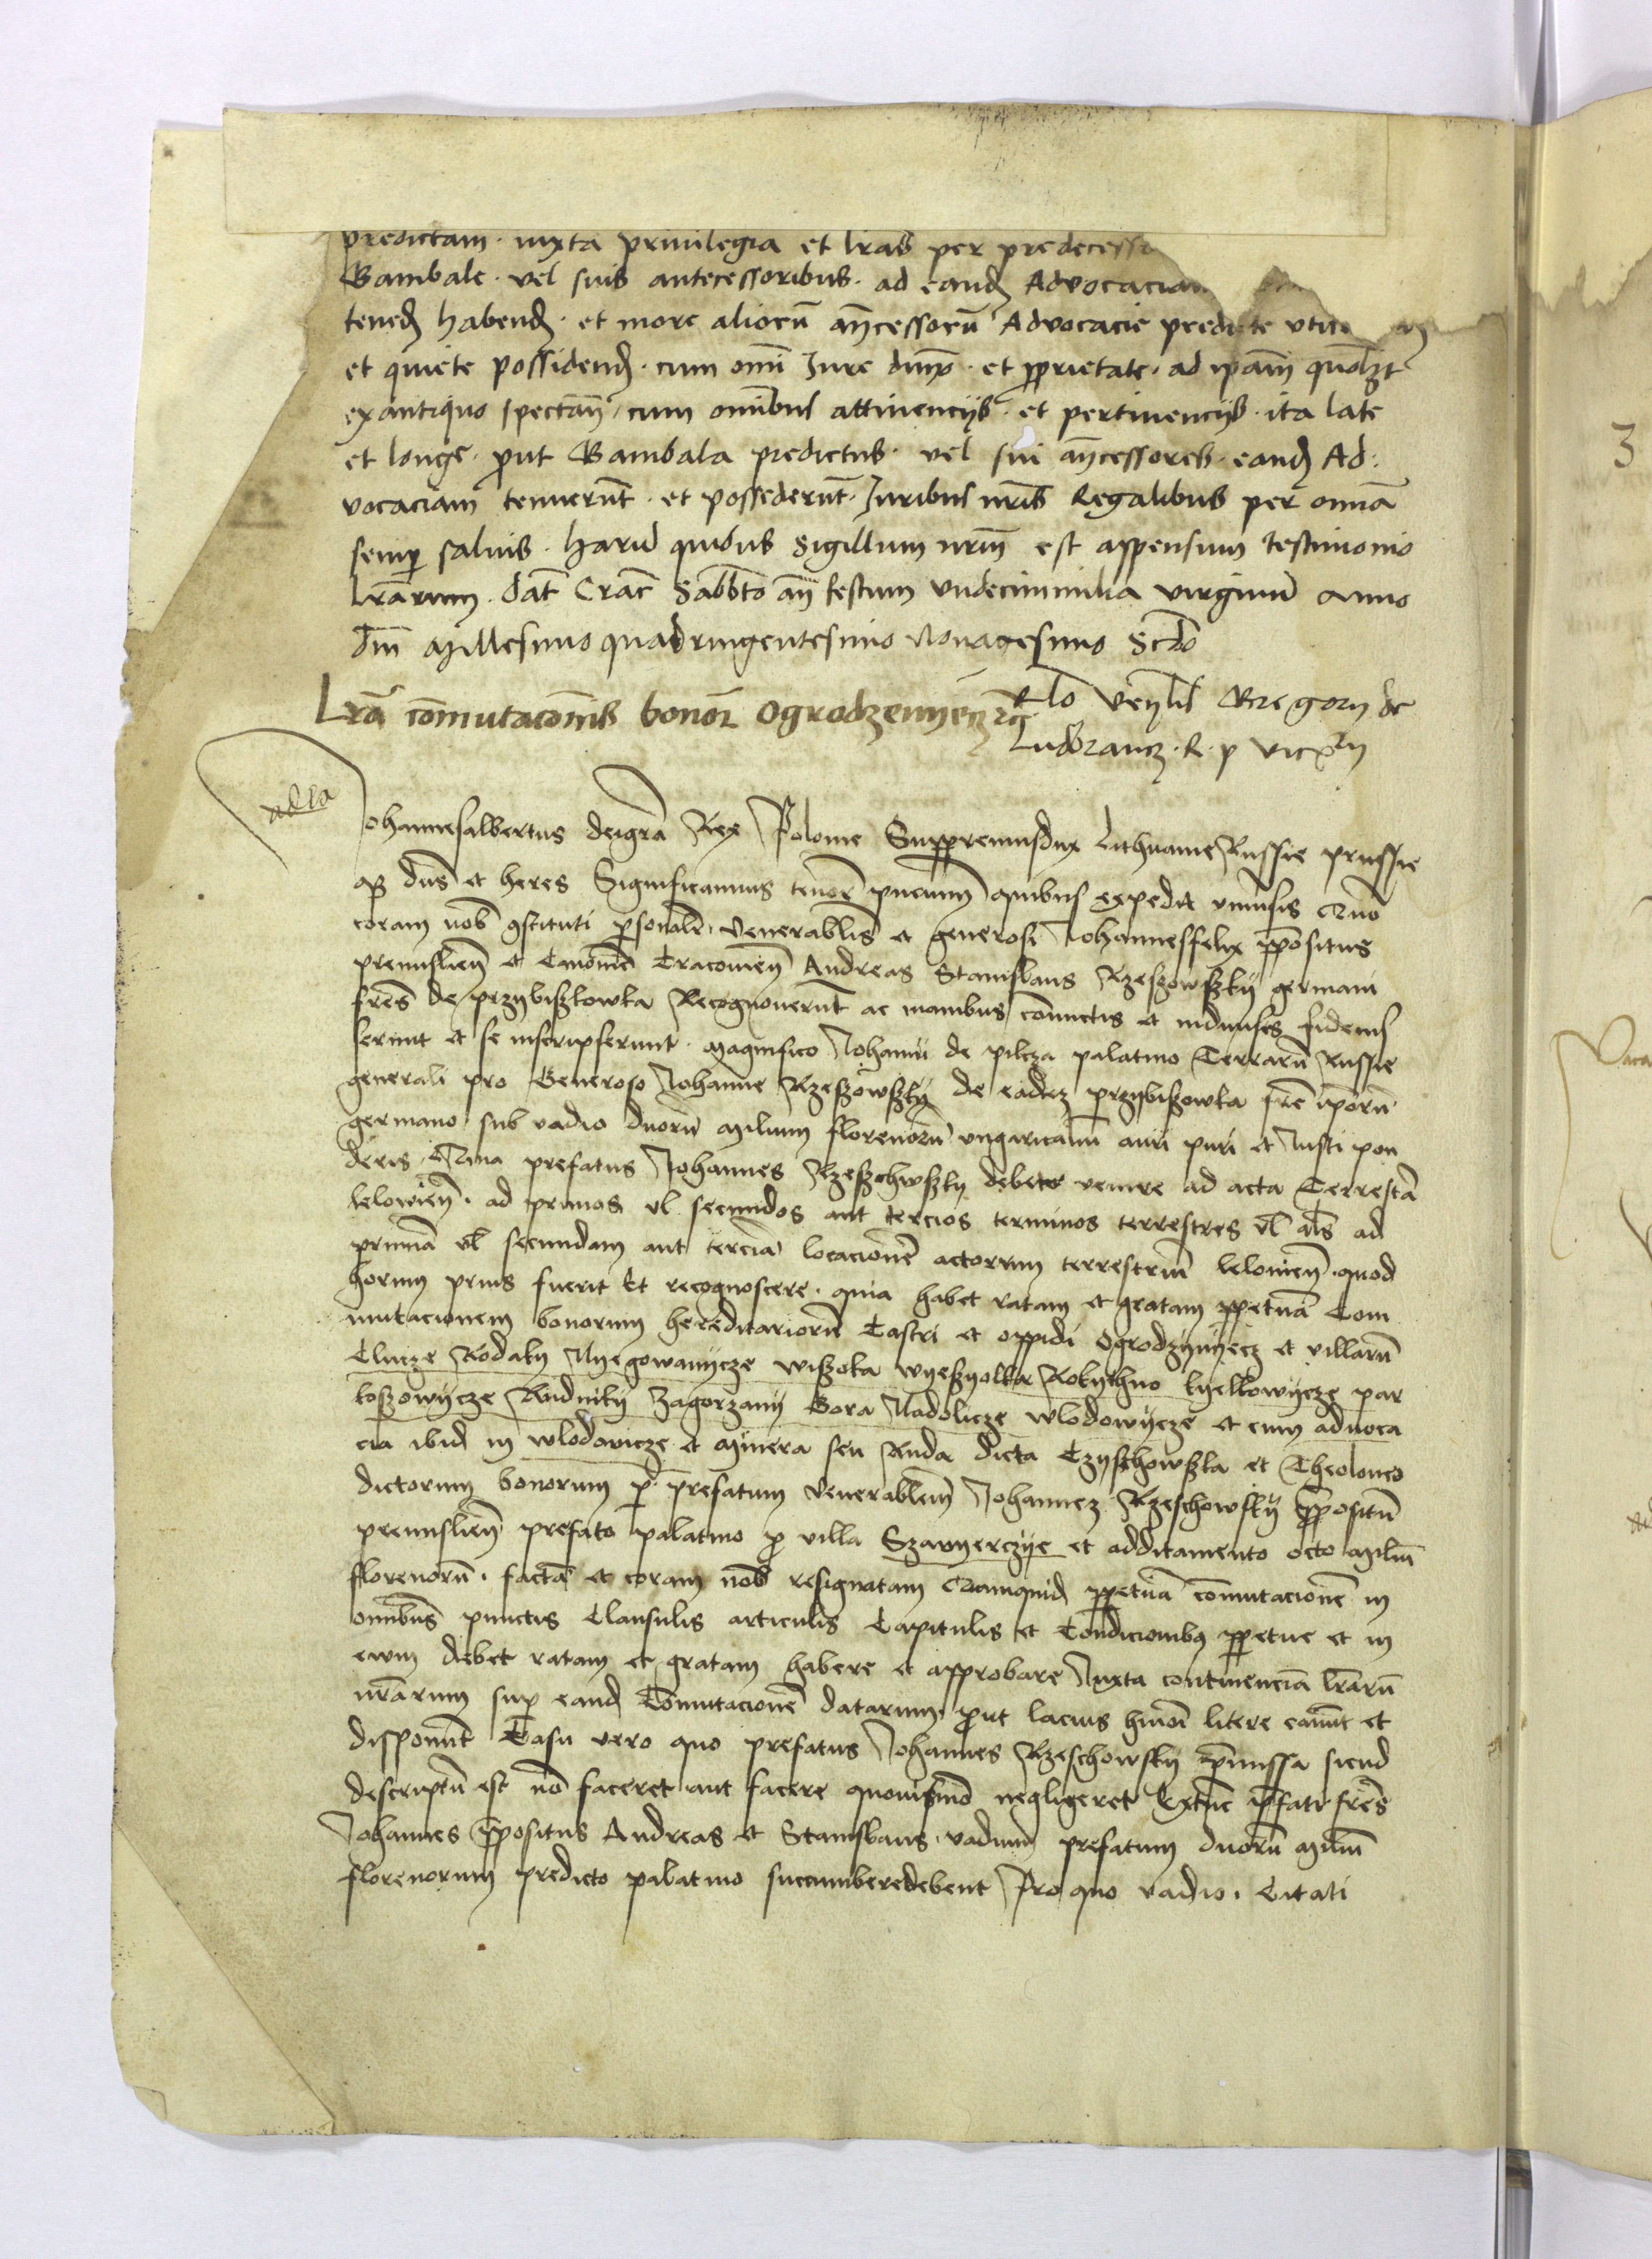 predictam · iuxta privilegia et lras per predecess
Bambale · vel suis antecessoribus · ad eand Advocaciam
tenend habend · et more aliorū ancessorū Advocacie predicte
et quiete possidend · cum omi Jure dmio · et proprietate · ad ipam quolzt
exantiquo spectan · cum omibus attinencijs · et pertinencijs · ita late
et longe · put Bambala predictus · vel sui ancessores · eand Ad:
vocaciam tenuerūt · et possederūt · Juribus nris Regalibus per omia
semp salvis · Harū quibus Sigillum nrm est appensum testimonio
lrarum · Dat Crac Sabbto an festum Undecimmilia virginū Anno
dni Millesimo quadringentesimo Nonagesimo Scdo
Lra comutacionis bonor Ogrodzenyen
Rlo Venlis Gregorij de
Ludbrancz · R · p · vicxrij
adla
Johannesalbertus deigra Rex Polonie Suppremusdux Lithuanie Russie prussie
qz dns et heres Significamus tenore pncium quibus expedit univsis Quo
coram nob gstituti psonalr · venerablis et generosi Johannesfelix ppositus
premislien et Canonic Cracovien Andreas Stanislaus Rzeszowszky germani
fres de przybiszlowka Recognoverut ac manibus coniunctis et indivisis fideius
serunt et se inscripserunt · magnifico Johanni de pilcza palatino Terrarū Russie
generali pro Generoso Johanne Rzeszowszky de eadez przybiszowka fre ipsorū
germano sub vadio duorū milium florenorū ungaricaliu auri puri et Justi pon
deris Quia prefatus Johannes Rzeszchwszky debet venire ad acta Terrestra
lelowien · ad primos vl secundos aut tercios terminos terrestres vl als ad
primā vl secundam aut terciā locacionē actorum terrestriū lelovien · quod
horum prius fuerit Et recognoscere · quia habet ratam et gratam ppetuā Com
mutacionem bonorum hereditariorū Castri et oppidi Ogrodzynyecz et villarū
Clucze Rodaky Nyegowanycze wiszoka wyeszyolka Rokythno kyelkowycze par
koszowycze Rudniky Zagorzany Gora Nadolicze wlodowycze et cum advoca
cia ibid in wlodovicze et Minera seu Ruda dicta Czyschowszka et Theoloneo
dictorum bonorum p prefatum venerablem Johannez Rzeschowsky ppositū
premislien prefato palatino p villa Szavyerczye et additamento octo Miliū
florenorū · factā et coram nob resignatam Quamquid ppetuā comutacionē in
omibus punctis Clausulis articulis Capitulis et Condicionibq ppetue et in
evum debet ratam et gratam habere et approbare Juxta continenciā lrarū
nrarum sup eand Comutacionē datarum · put lacius hmoi litere canut et
disponūt Casu vero quo prefatus Johannes Rzeschowsky pmissa sicud
descriptū est nō faceret aut facere quovismō negligeret Extūc pfati fres
Johannes ppositus Andreas et Stanislaus · vadium prefatum duorū Miliū
florenorum predicto palatino succumberedebent Pro quo vadio · Citati
3